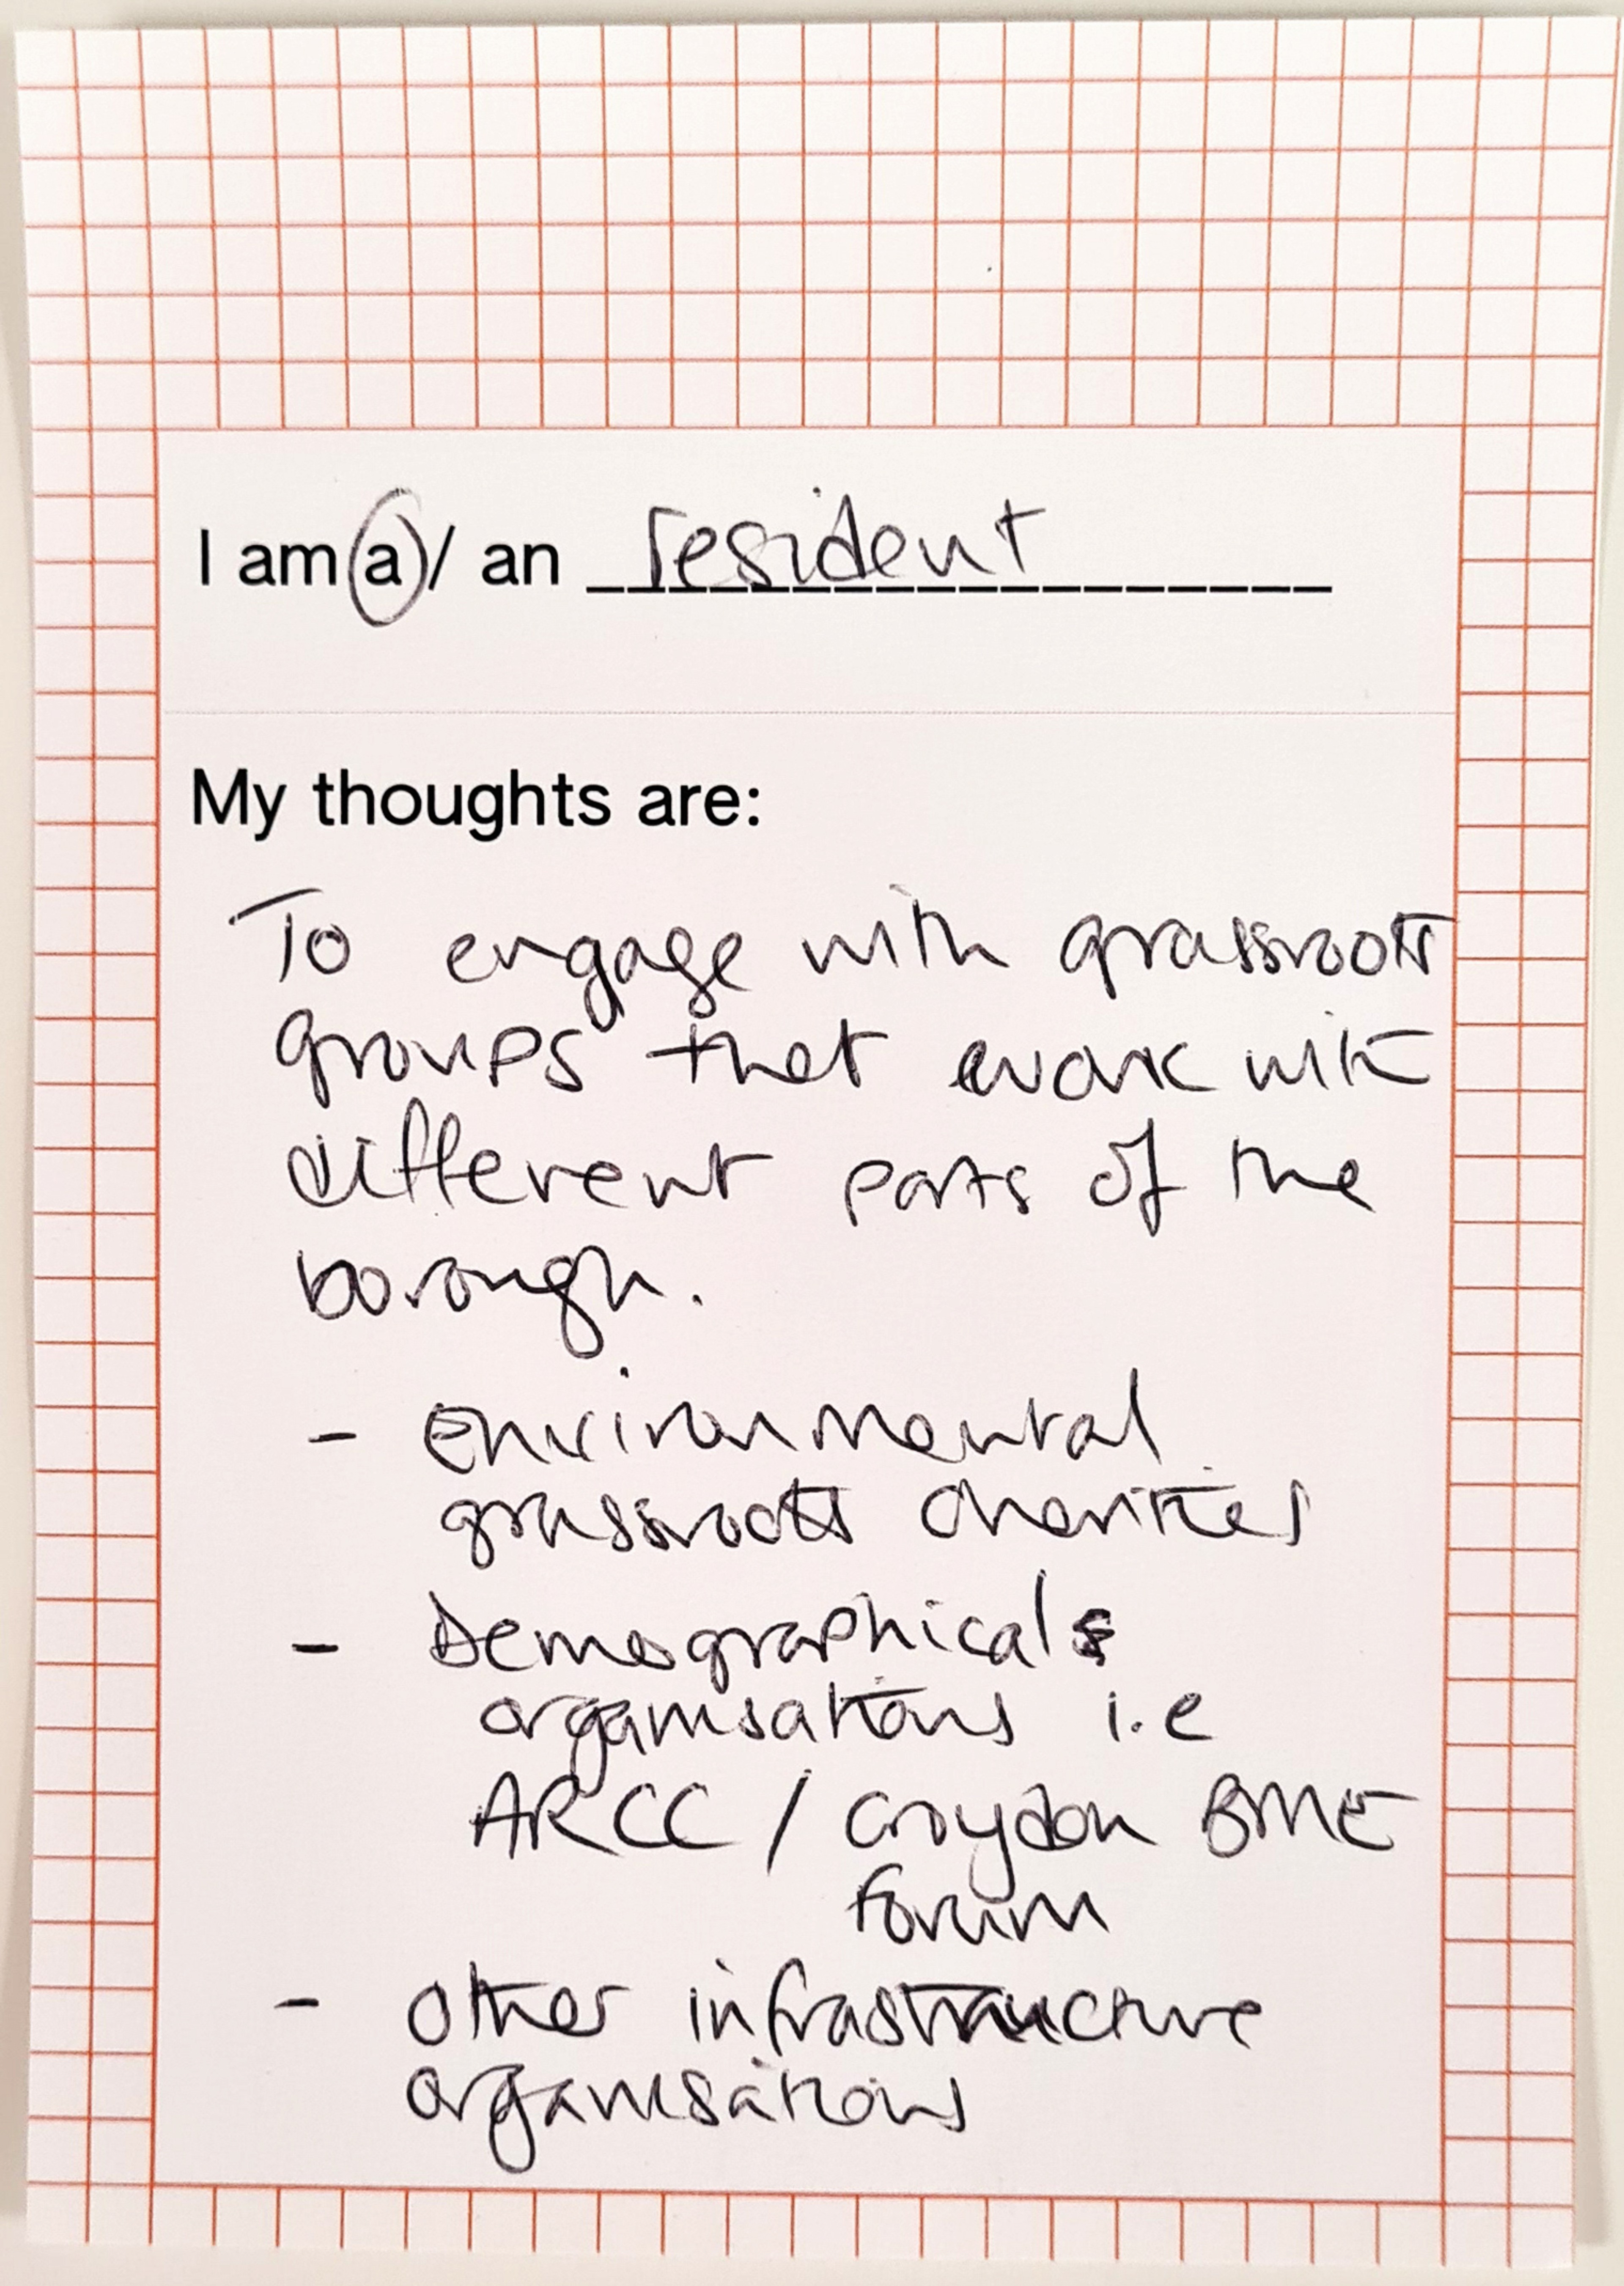 I am a / an resident
My thoughts are:
To engage with grassroots
groups that work with
different parts of the
borough.
- Environmental
grassroots charities
- Demographical
organisations i.e
ARCC / Croydon BME
forum
- Other infrastructure
organisations